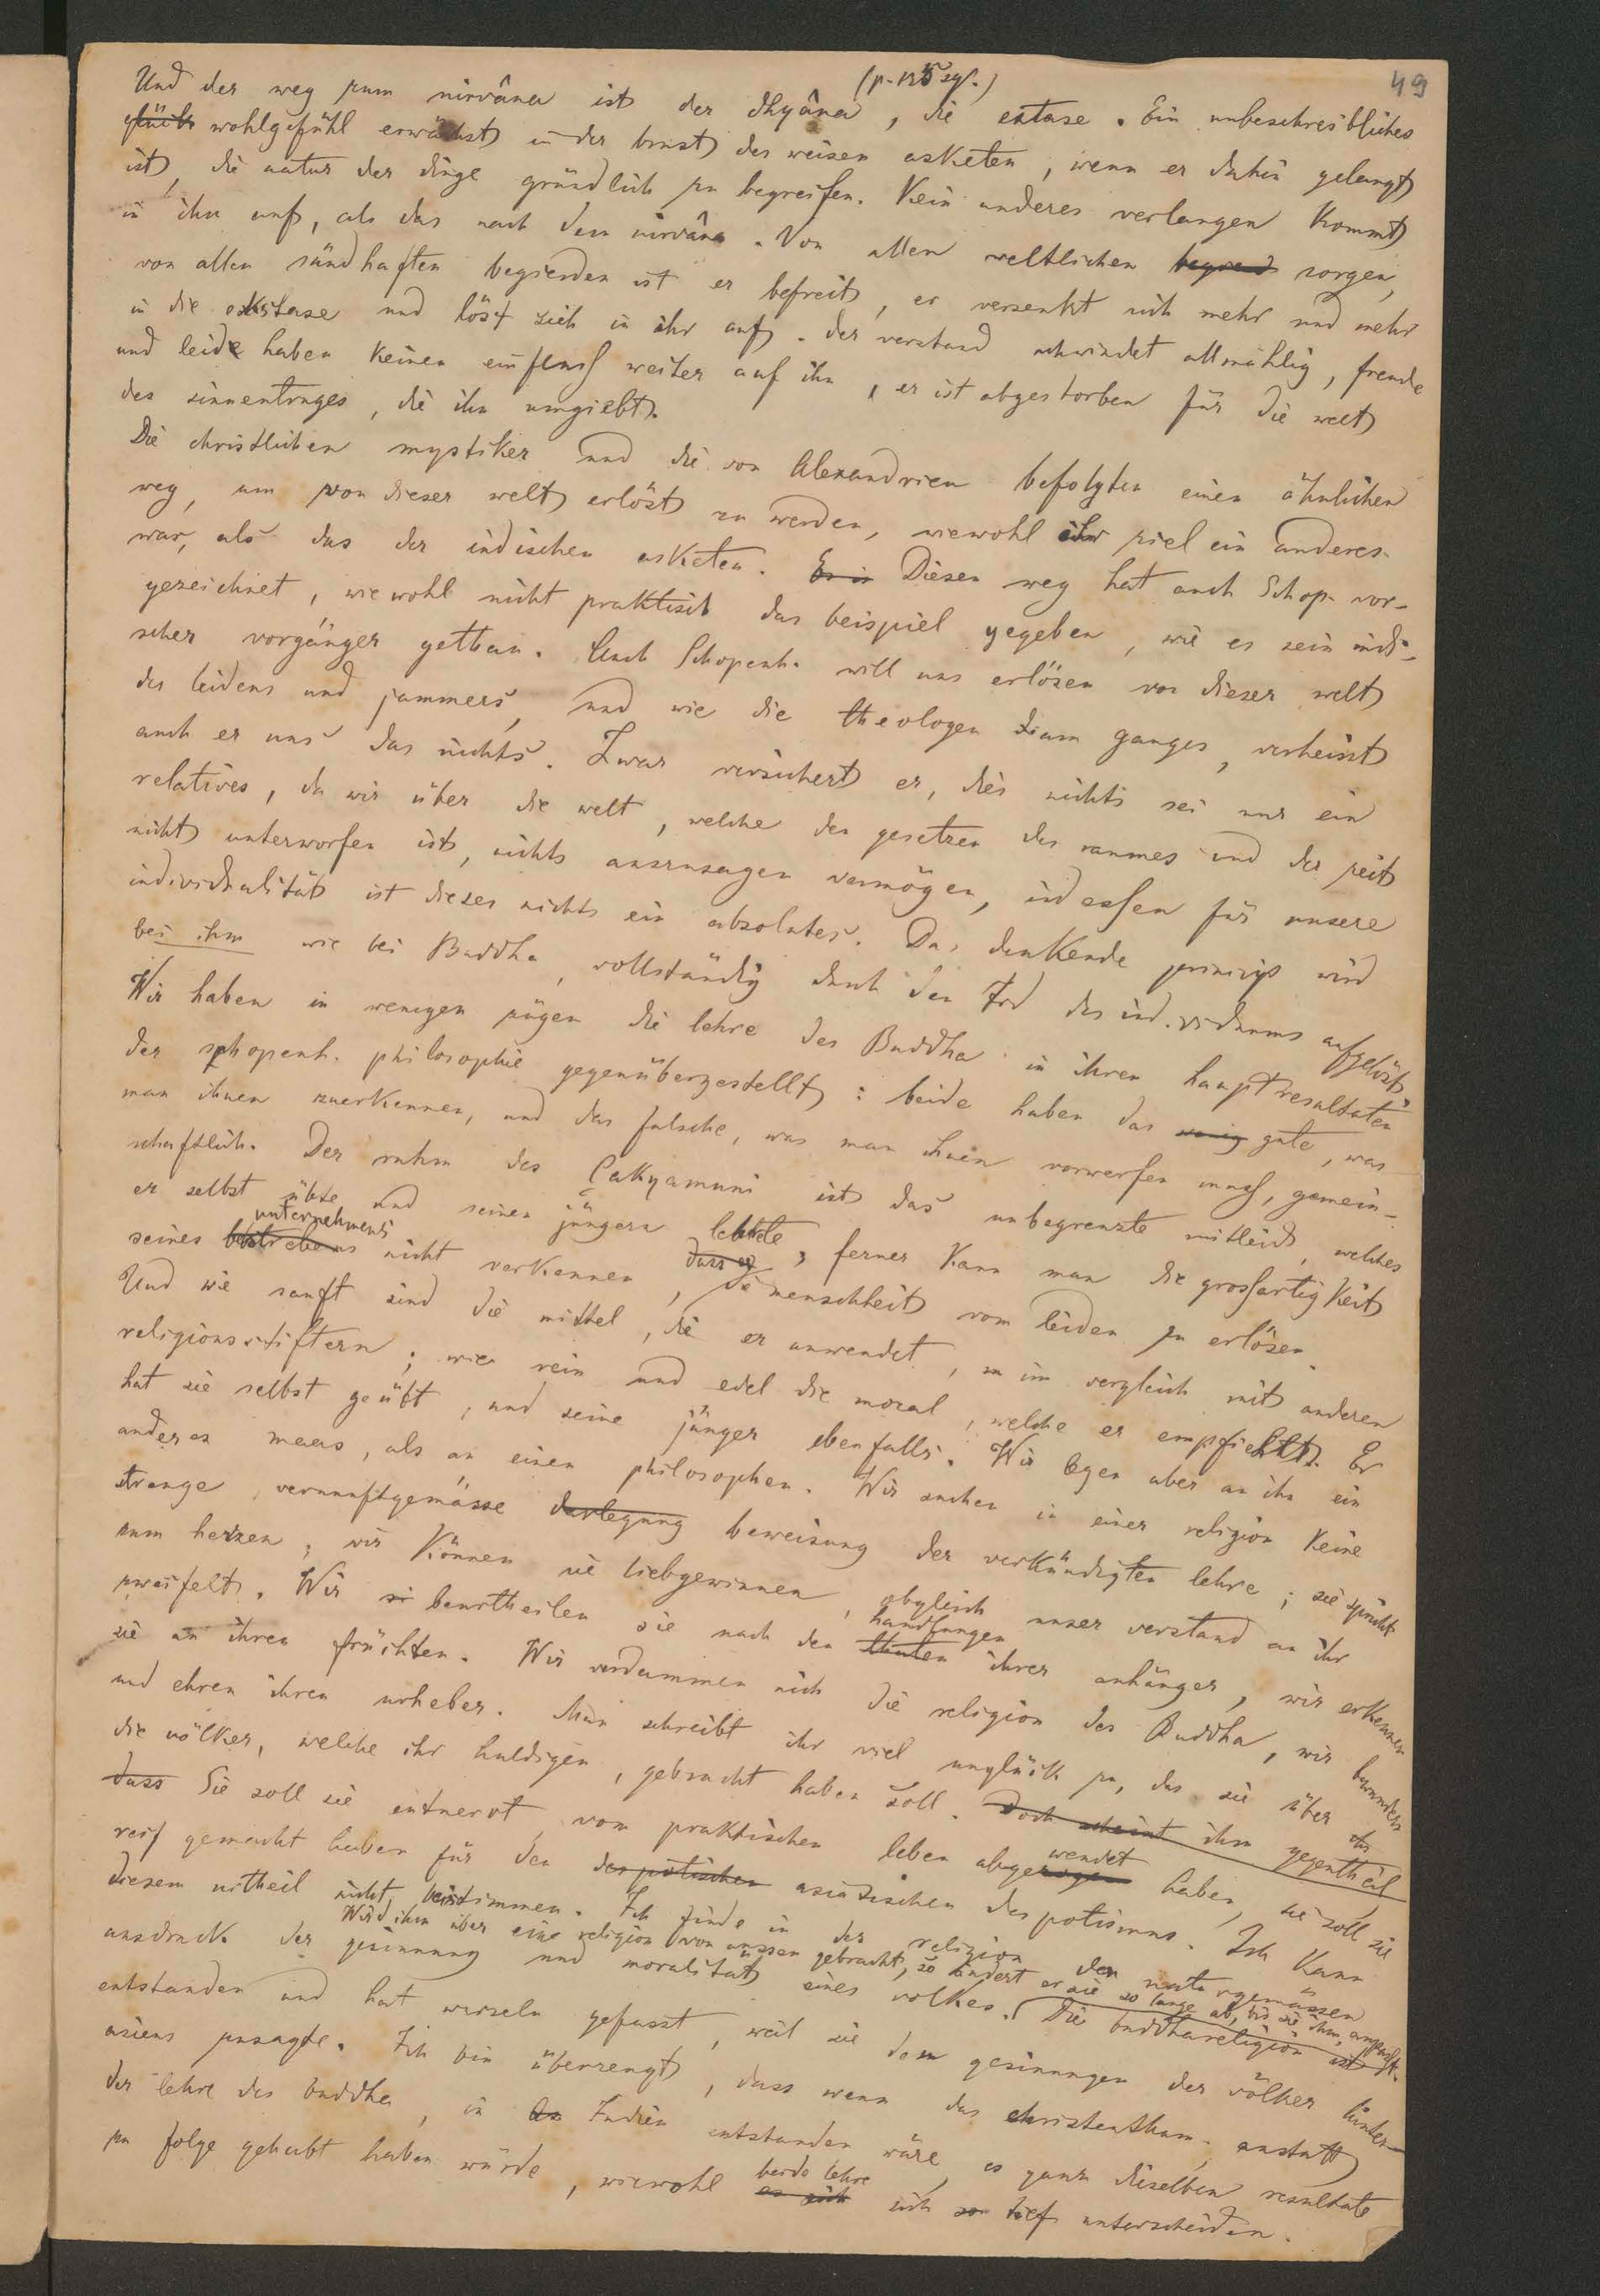 49
(p. 135 sqf.)
Und der weg zum nirvâna ist der dhyâna, die extase. Ein unbeschreibliches
glück wohlgefühl erwächst in der brust des weisen asketen, wenn er dahin gelangt
ist, die natur der dinge gründlich zu begreifen. Kein anderes verlangen kommt
in ihm auf, als das nach dem nirvâna. Von allen weltlichen sorgen,
von allen sündhaften begierden ist er befreit, er versenkt sich mehr und mehr
in die ekstase und löst sich in ihr auf. der verstand schwindet allmählig, freude
und leide haben keinen einfluss weiter auf ihn, er ist abgestorben für die welt
des sinnentruges, die ihn umgiebt.
Die christlichen mystiker und die von Alexandrien befolgten einen ähnlichen
weg, um von dieser welt erlöst zu werden, wiewohl ihr ziel ein anderes
war, als das der indischen asketen. Es is Diesen weg hat auch Schop. vor-
gezeichnet, wiewohl nicht praktisch das beispiel gegeben, wie es sein indi-
scher vorgänger gethan. Auch Schopenh. will uns erlösen von dieser welt
des leidens und jammers, und wie die theologen vom ganges, verheisst
auch er uns das nichts. Zwar versichert er, dies nichts sei nur ein
relatives, da wir über die welt, welche den gesetzen des raumes und der zeit
nicht unterworfen ist, nichts auszusagen vermögen, indessen für unsere
individualität ist dieses nichts ein absolutes. Das denkende prinzip wird
bei ihm wie bei Buddha, vollständig durch den Tod des individuums aufgelöst.
Wir haben in wenigen zügen die lehre des Buddha in ihren hauptresultaten
der schopenh. philosophie gegenübergestellt: beide haben das wenig gute, was
man ihnen zuerkennen, und das falsche, was man ihnen vorwerfen muss, gemein-
schaftlich. Der ruhm des Çakyamuni ist das unbegrenzte mitleid, welches
er selbst übte und seinen jüngern lehrte; ferner kann man die grossartigkeit
unternehmens
seines bestrebens nicht verkennen, dass er die menschheit vom leiden zu erlösen.
Und wie sanft sind die mittel, die er anwendet, im vergleich mit anderen
religionsstiftern; wie rein und edel die moral, welche er empfiehlt. Er
hat sie selbst geübt, und seine jünger ebenfalls. Wir legen aber an ihn ein
anderes maas, als an einen philosophen. Wir suchen in einer religion keine
strenge vernunftgemässe darlegung beweisung der verkündigten lehre; sie spricht
zum herzen; wir können sie liebgewinnen, obgleich unser verstand an ihr
handlungen
zweifelt. Wir beurtheilen sie nach den thaten ihrer anhänger, wir erkennen
sie an ihren früchten. Wir verdammen nich die religion des Buddha, wir bewundern
und ehren ihren urheber. Man schreibt ihr viel unglück zu, das sie über
die völker, welche ihr huldigen, gebracht haben soll. Doch scheint ihm das gegentheil
wendet
dass Sie soll sie entnervt, vom praktischen leben abgezogen haben, sie soll sie
reif gemacht haben für den despotischen asiatischen despotismus. Ich kann
diesem urtheil nicht beistimmen. Ich finde in der religion den naturgemässen
Wird ihm aber eine religion von aussen gebracht, so ändert er sie so lange ab, bis sie ihm anpasst.
ausdruck der gesinnung und moralität eines volkes. Die buddhareligion ist
entstanden und hat wurzeln gefasst, weil sie dem gesinnungen der völker hinter-
asiens zusagte. Ich bin überzeugt, dass wenn das christenthum anstatt
der lehre des buddha, in Indien entstanden wäre, es ganz dieselben resultate
beide lehre
zu folge gehabt haben würde, wiewohl sich so tief unterscheiden.